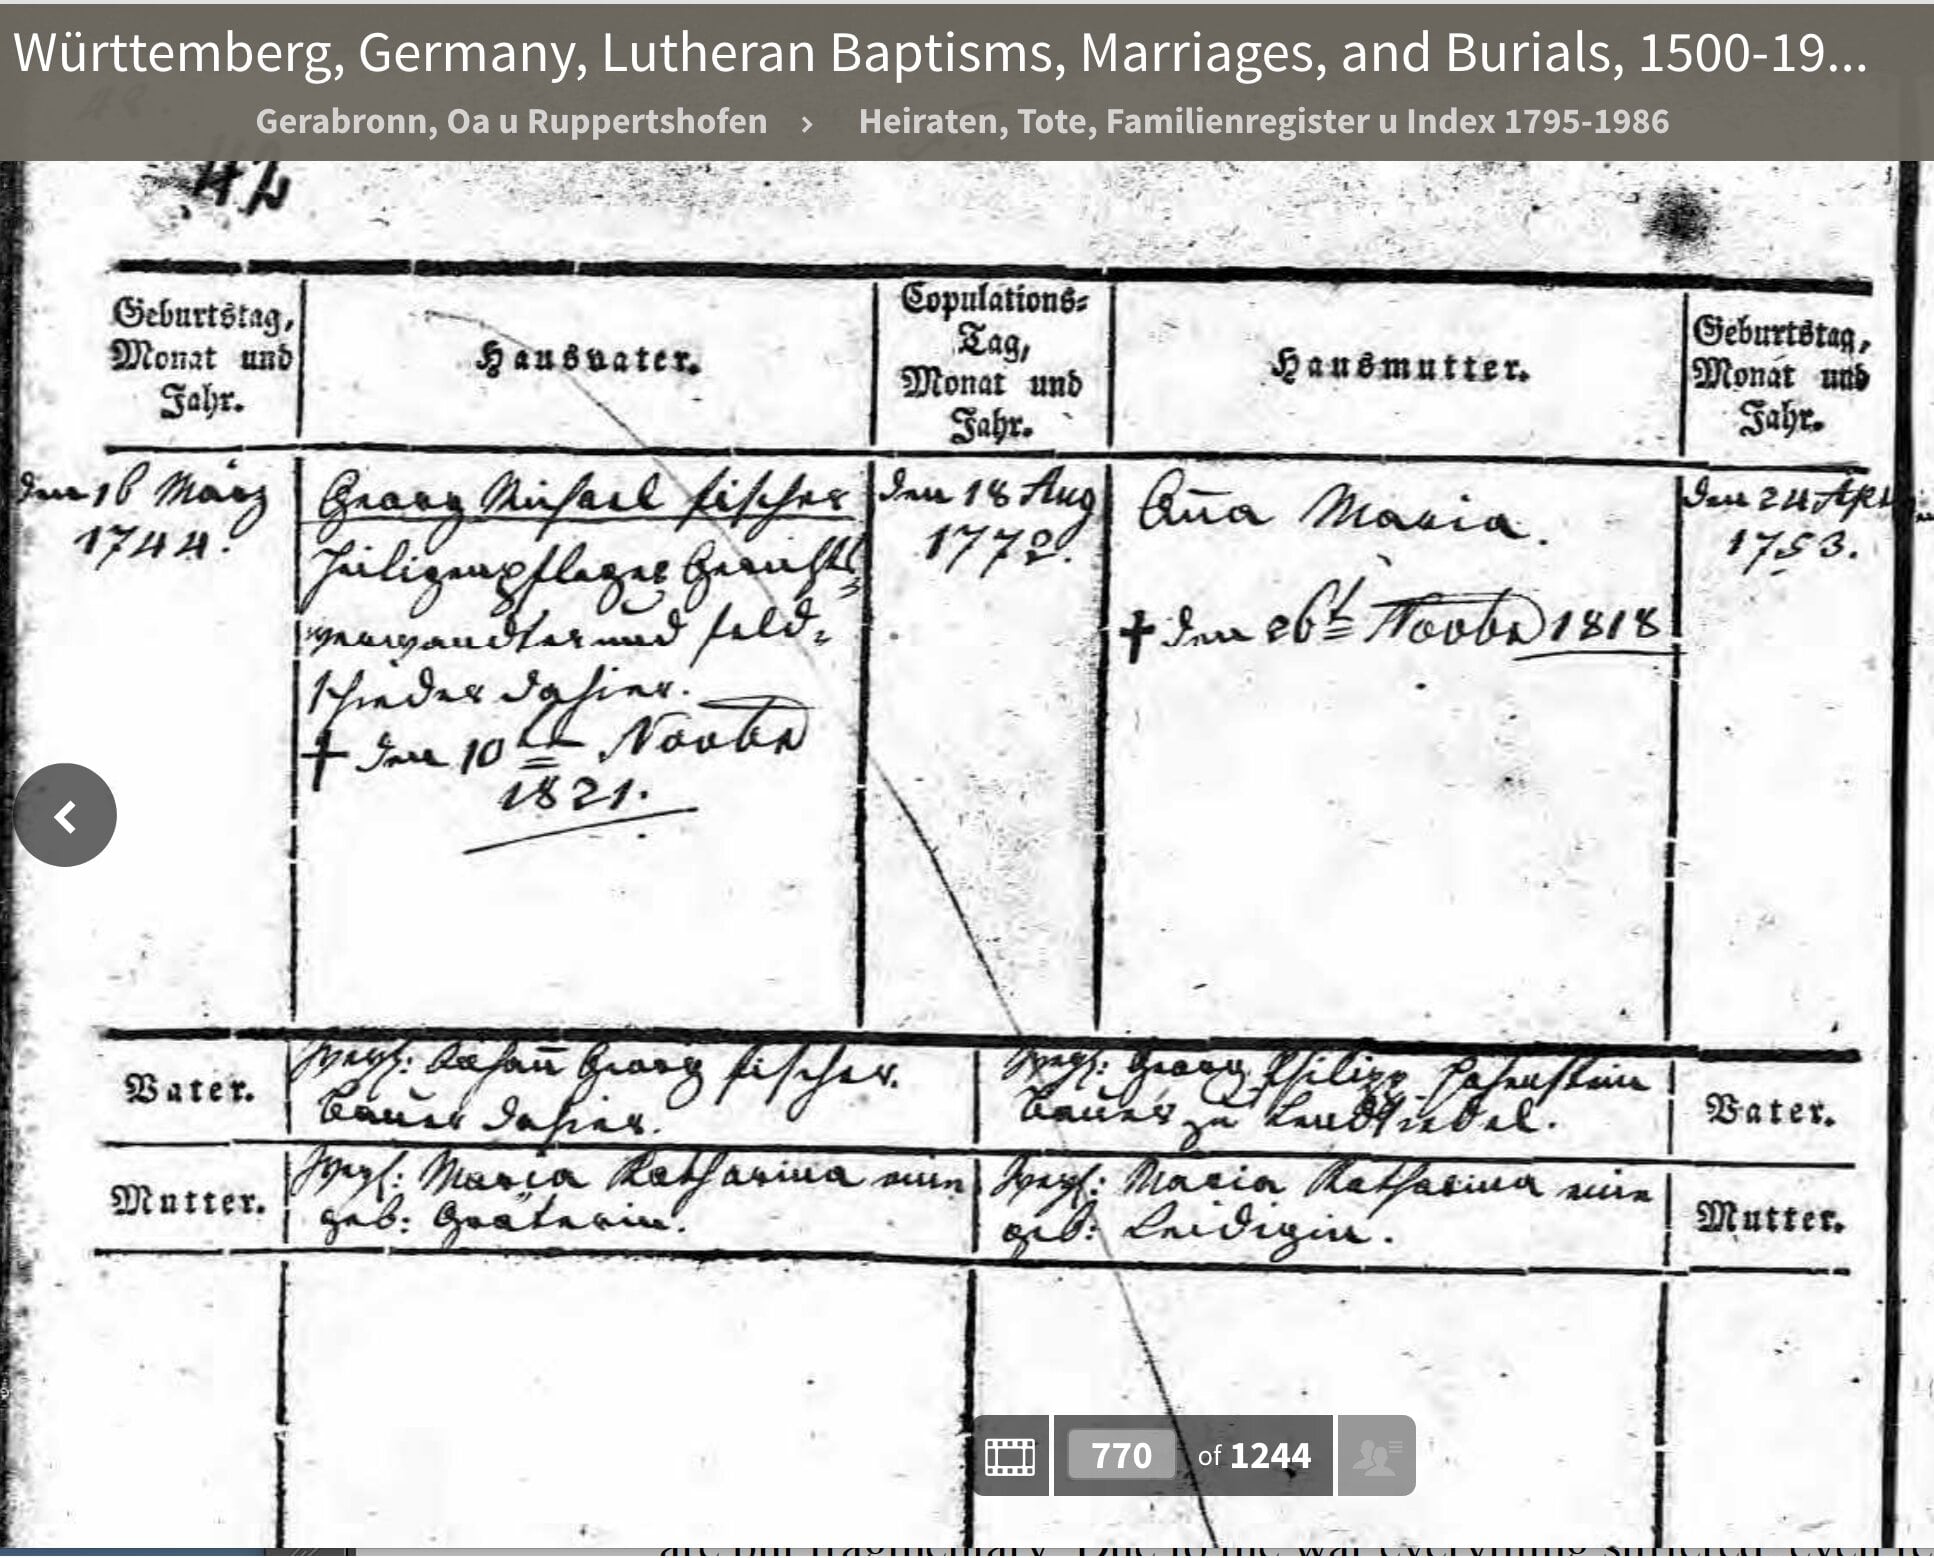 Württemberg, Germany, Lutheran Baptisms, Marriages, and Burials, 1500-19...
Gerabronn, Oa u Ruppertshofen › Heiraten, Tote, Familienregister u Index 1795-1986
42
Geburtstag,
Monat und
Jahr.
Hausvater.
Copulations-
Tag,
Monat und
Jahr.
Hausmutter.
Geburtstag,
Monat und
Jahr.
den 16 März
1744.
Georg Michael Fischer
Heiligenpfleger Gerichts-
verwandter und Feld-
schieder dahier.
† den 10 Novbr
1821.
den 18 Aug
1772.
Anna Maria.
† den 26t Novbr 1818
den 24 Apr
1753.
Vater.
weyl: Johann Georg Fischer.
Bauer dahier.
weyl: Georg Philipp
Bauer zu Lendsiedel.
Vater.
Mutter.
weyl: Maria Katharina eine
geb: Gräterin.
weyl: Maria Katharina eine
geb: Leidigin.
Mutter.
770 of 1244